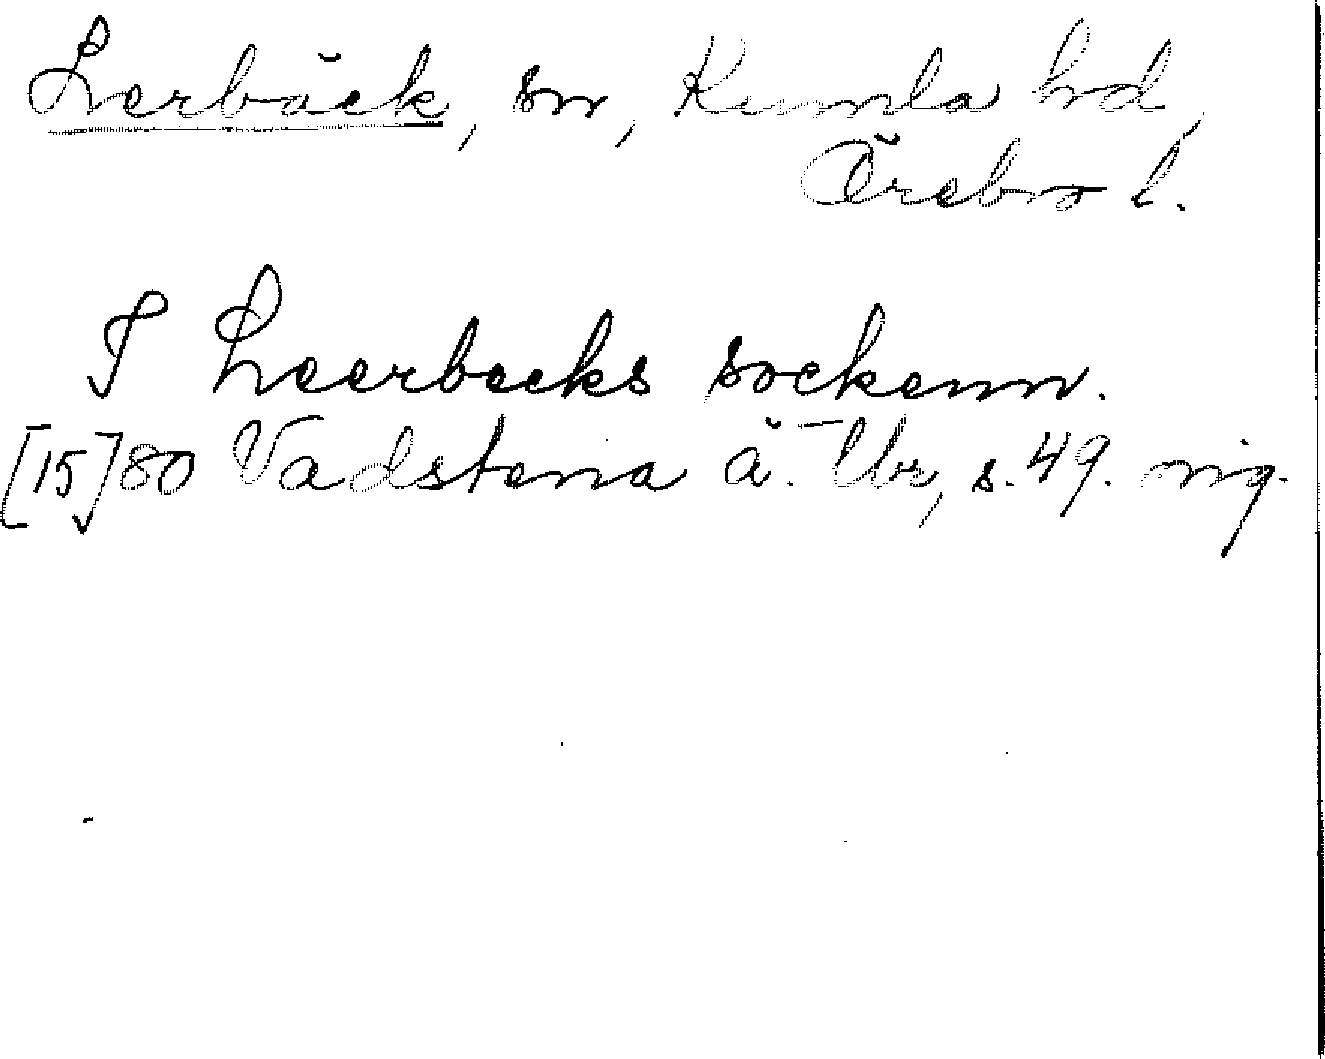 Lerbäck, sn, Kumla hd,
Örebro l.
I Leerbecks sockenn.
[15]80 Vadstena ä. Tbr, s. 49. rig.